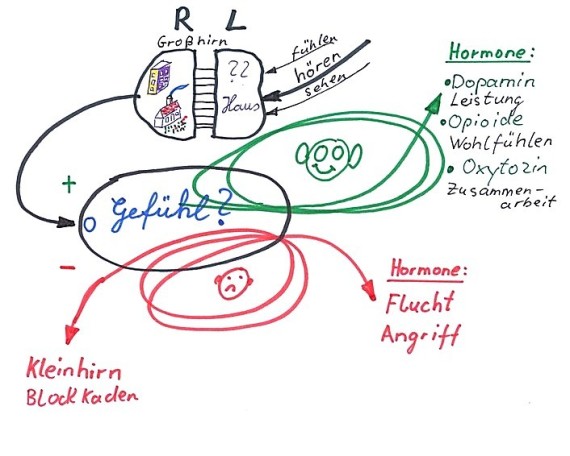 R L
Großhirn
fühlen
hören
sehen
??
Haus
Hormone:
•Dopamin
Leistung
•Opioide
Wohlfühlen
• Oxytozin
Zusammen-
arbeit
+
o Gefühl?
–
Hormone:
Flucht
Angriff
Kleinhirn
Blockaden